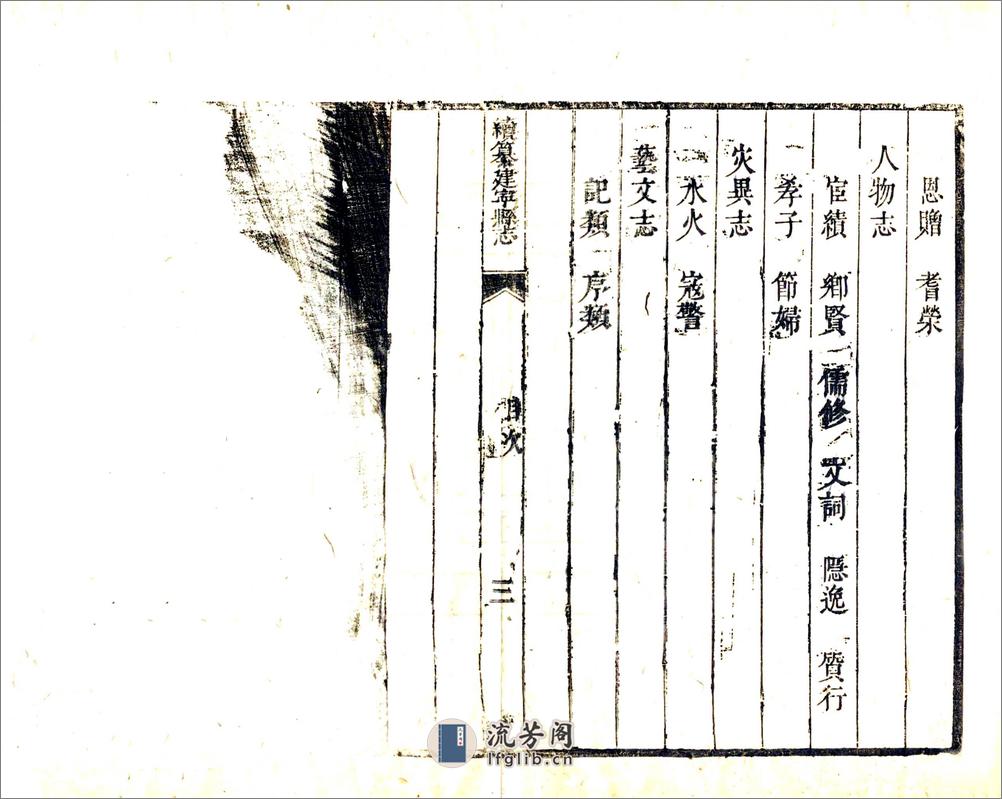 恩贈　耆榮
人物志
宦績　鄉賢　儒修　文詞　隱逸　質行
孝子　節婦
灾異志
水火　寇警
藝文志
記類　序類
續纂建寧縣志　目次　三
流芳阁
lfglib.cn